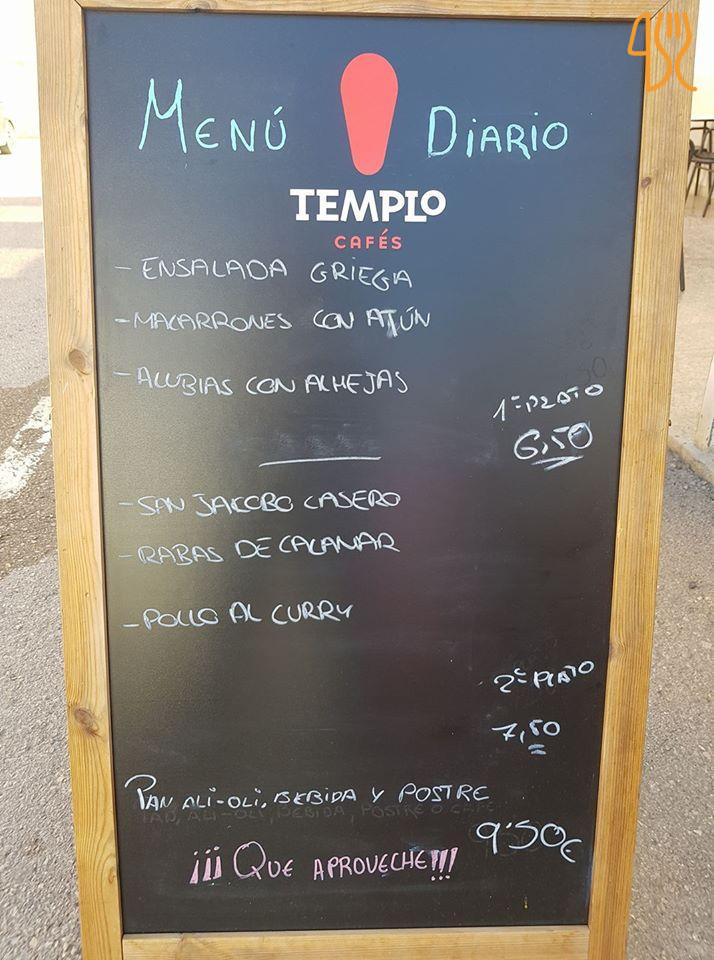 MENÚ DIARIO
TEMPLO
CAFÉS
- ENSALADA GRIEGA
- MACARRONES CON ATÚN
- ALUBIAS CON ALMEJAS
1º PLATO
6,50
- SAN JACOBO CASERO
- RABAS DE CALAMAR
- POLLO AL CURRY
2º PLATO
7,50
PAN ALI-OLI, BEBIDA Y POSTRE
PAN, ALI-OLI, BEBIDA, POSTRE O CAFÉ
9'50€
¡¡¡QUE APROVECHE!!!